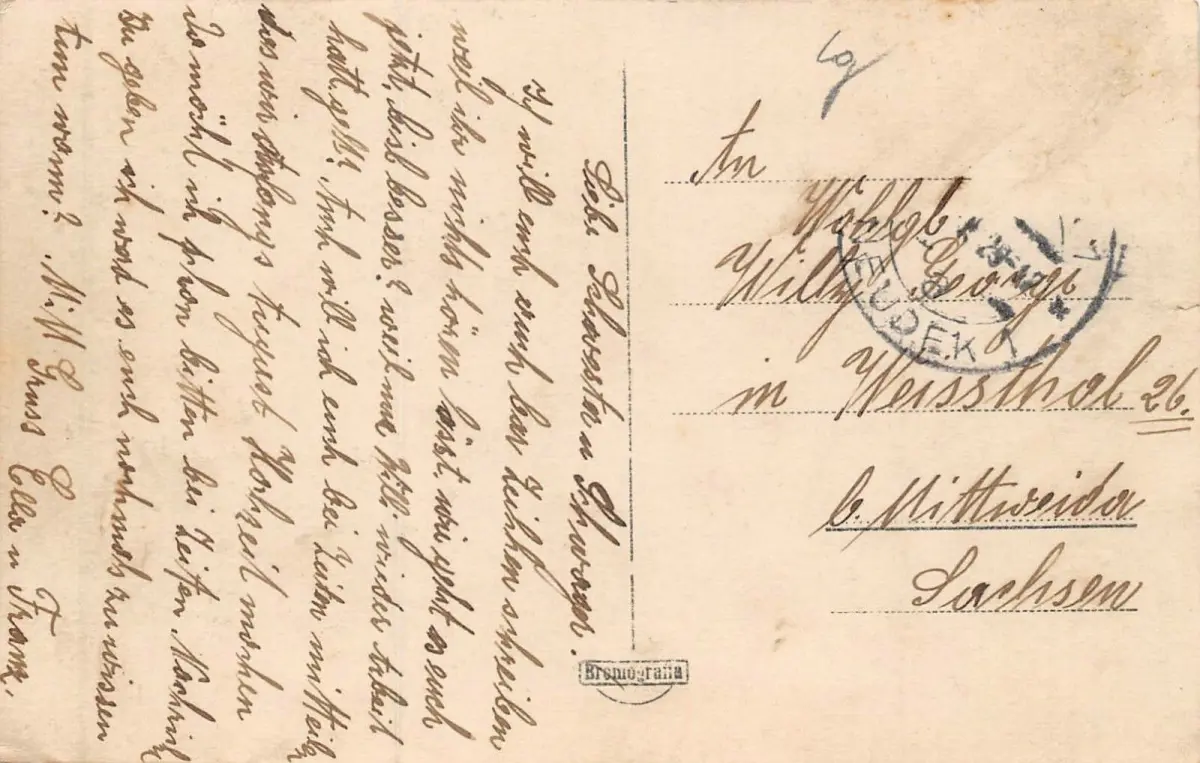 Liebe Schwester u Schwager.
Ich will euch auch bar Zeihlen schreiben
weil ihr nichts hören lässt. wie geht es euch
jetzt, bist besser? weil nur Will wieder Arbeit
hatt. gelt? Auch will ich euch bei Zeiten mitteiln
das wir Anfangs August Hochzeit machen
Da möcht ich schon bitten bei Zeiten Nachricht
zu geben ich werd es euch nochmals zu wissen
tun wann? M. H. Gruss Ella u Franz.
Bromografia
An
Wohlgb
Willy Georgi
in Weissthal 26.
b. Mittweida
Sachsen
NEUDEK 1